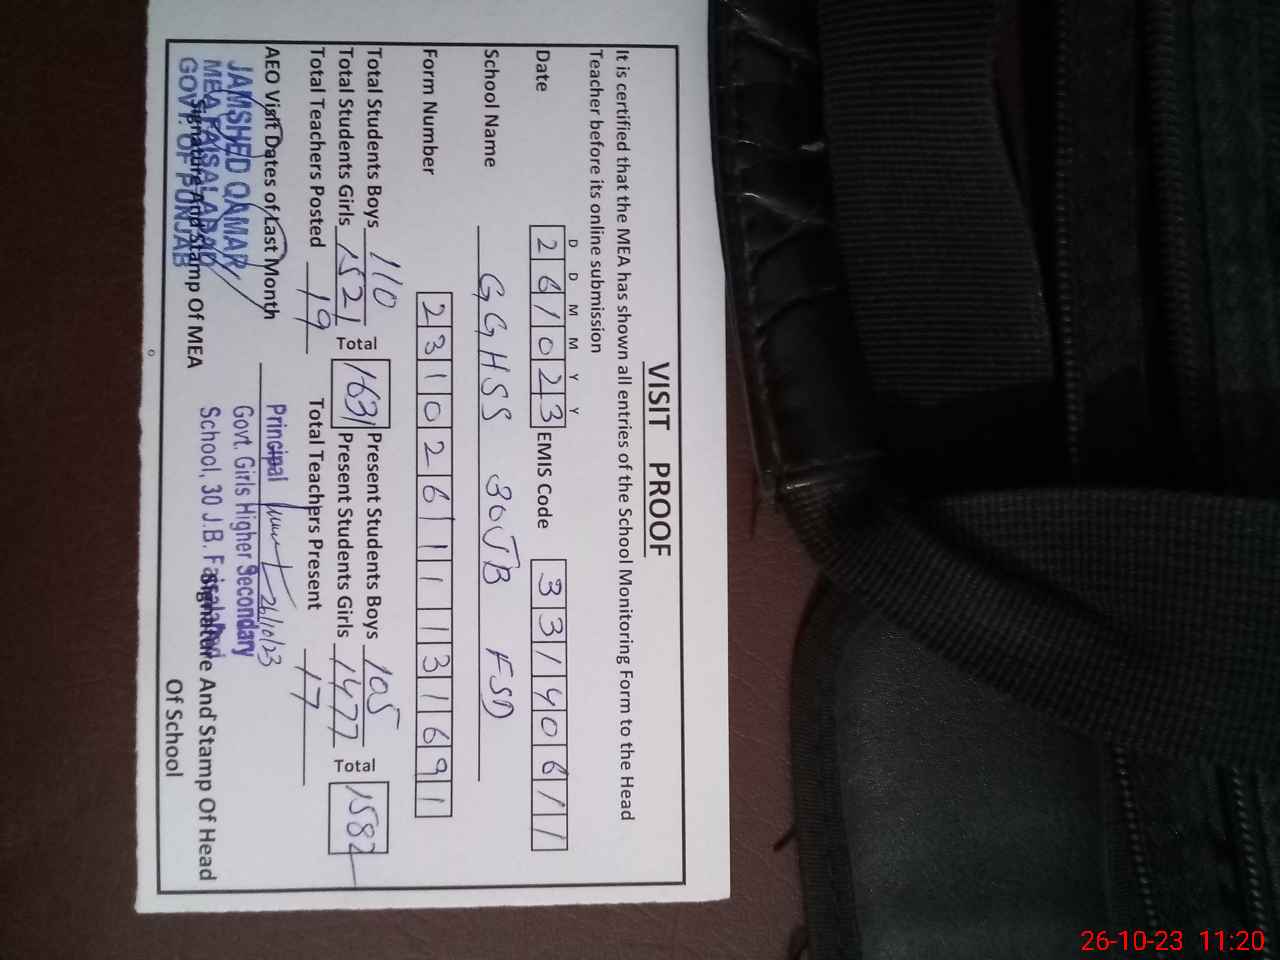 VISIT PROOF
It is certified that the MEA has shown all entries of the School Monitoring Form to the Head
Teacher before its online submission
D D M M Y Y
Date 261023 EMIS Code 33140611
School Name GGHSS 30JB FSD
Form Number 23102611131691
Total Students Boys 110 Present Students Boys 105
Total Students Girls 1521 Total 1631 Present Students Girls 1477 Total 1582
Total Teachers Posted 19 Total Teachers Present 17
AEO Visit Dates of Last Month
JAMSHED QAMAR
MEA FAISALABAD
GOVT. OF PUNJAB
Signature And Stamp Of MEA
Principal 26/10/23
Govt. Girls Higher Secondary
School, 30 J.B. Faisalabad
Signature And Stamp Of Head
Of School
26-10-23 11:20